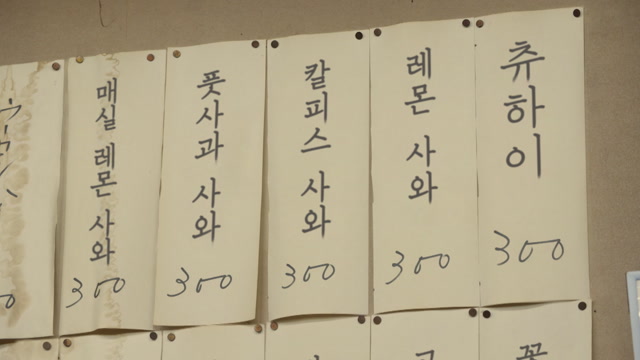 츄하이
300
레몬 사와
300
칼피스 사와
300
풋사과 사와
300
매실 레몬 사와
300